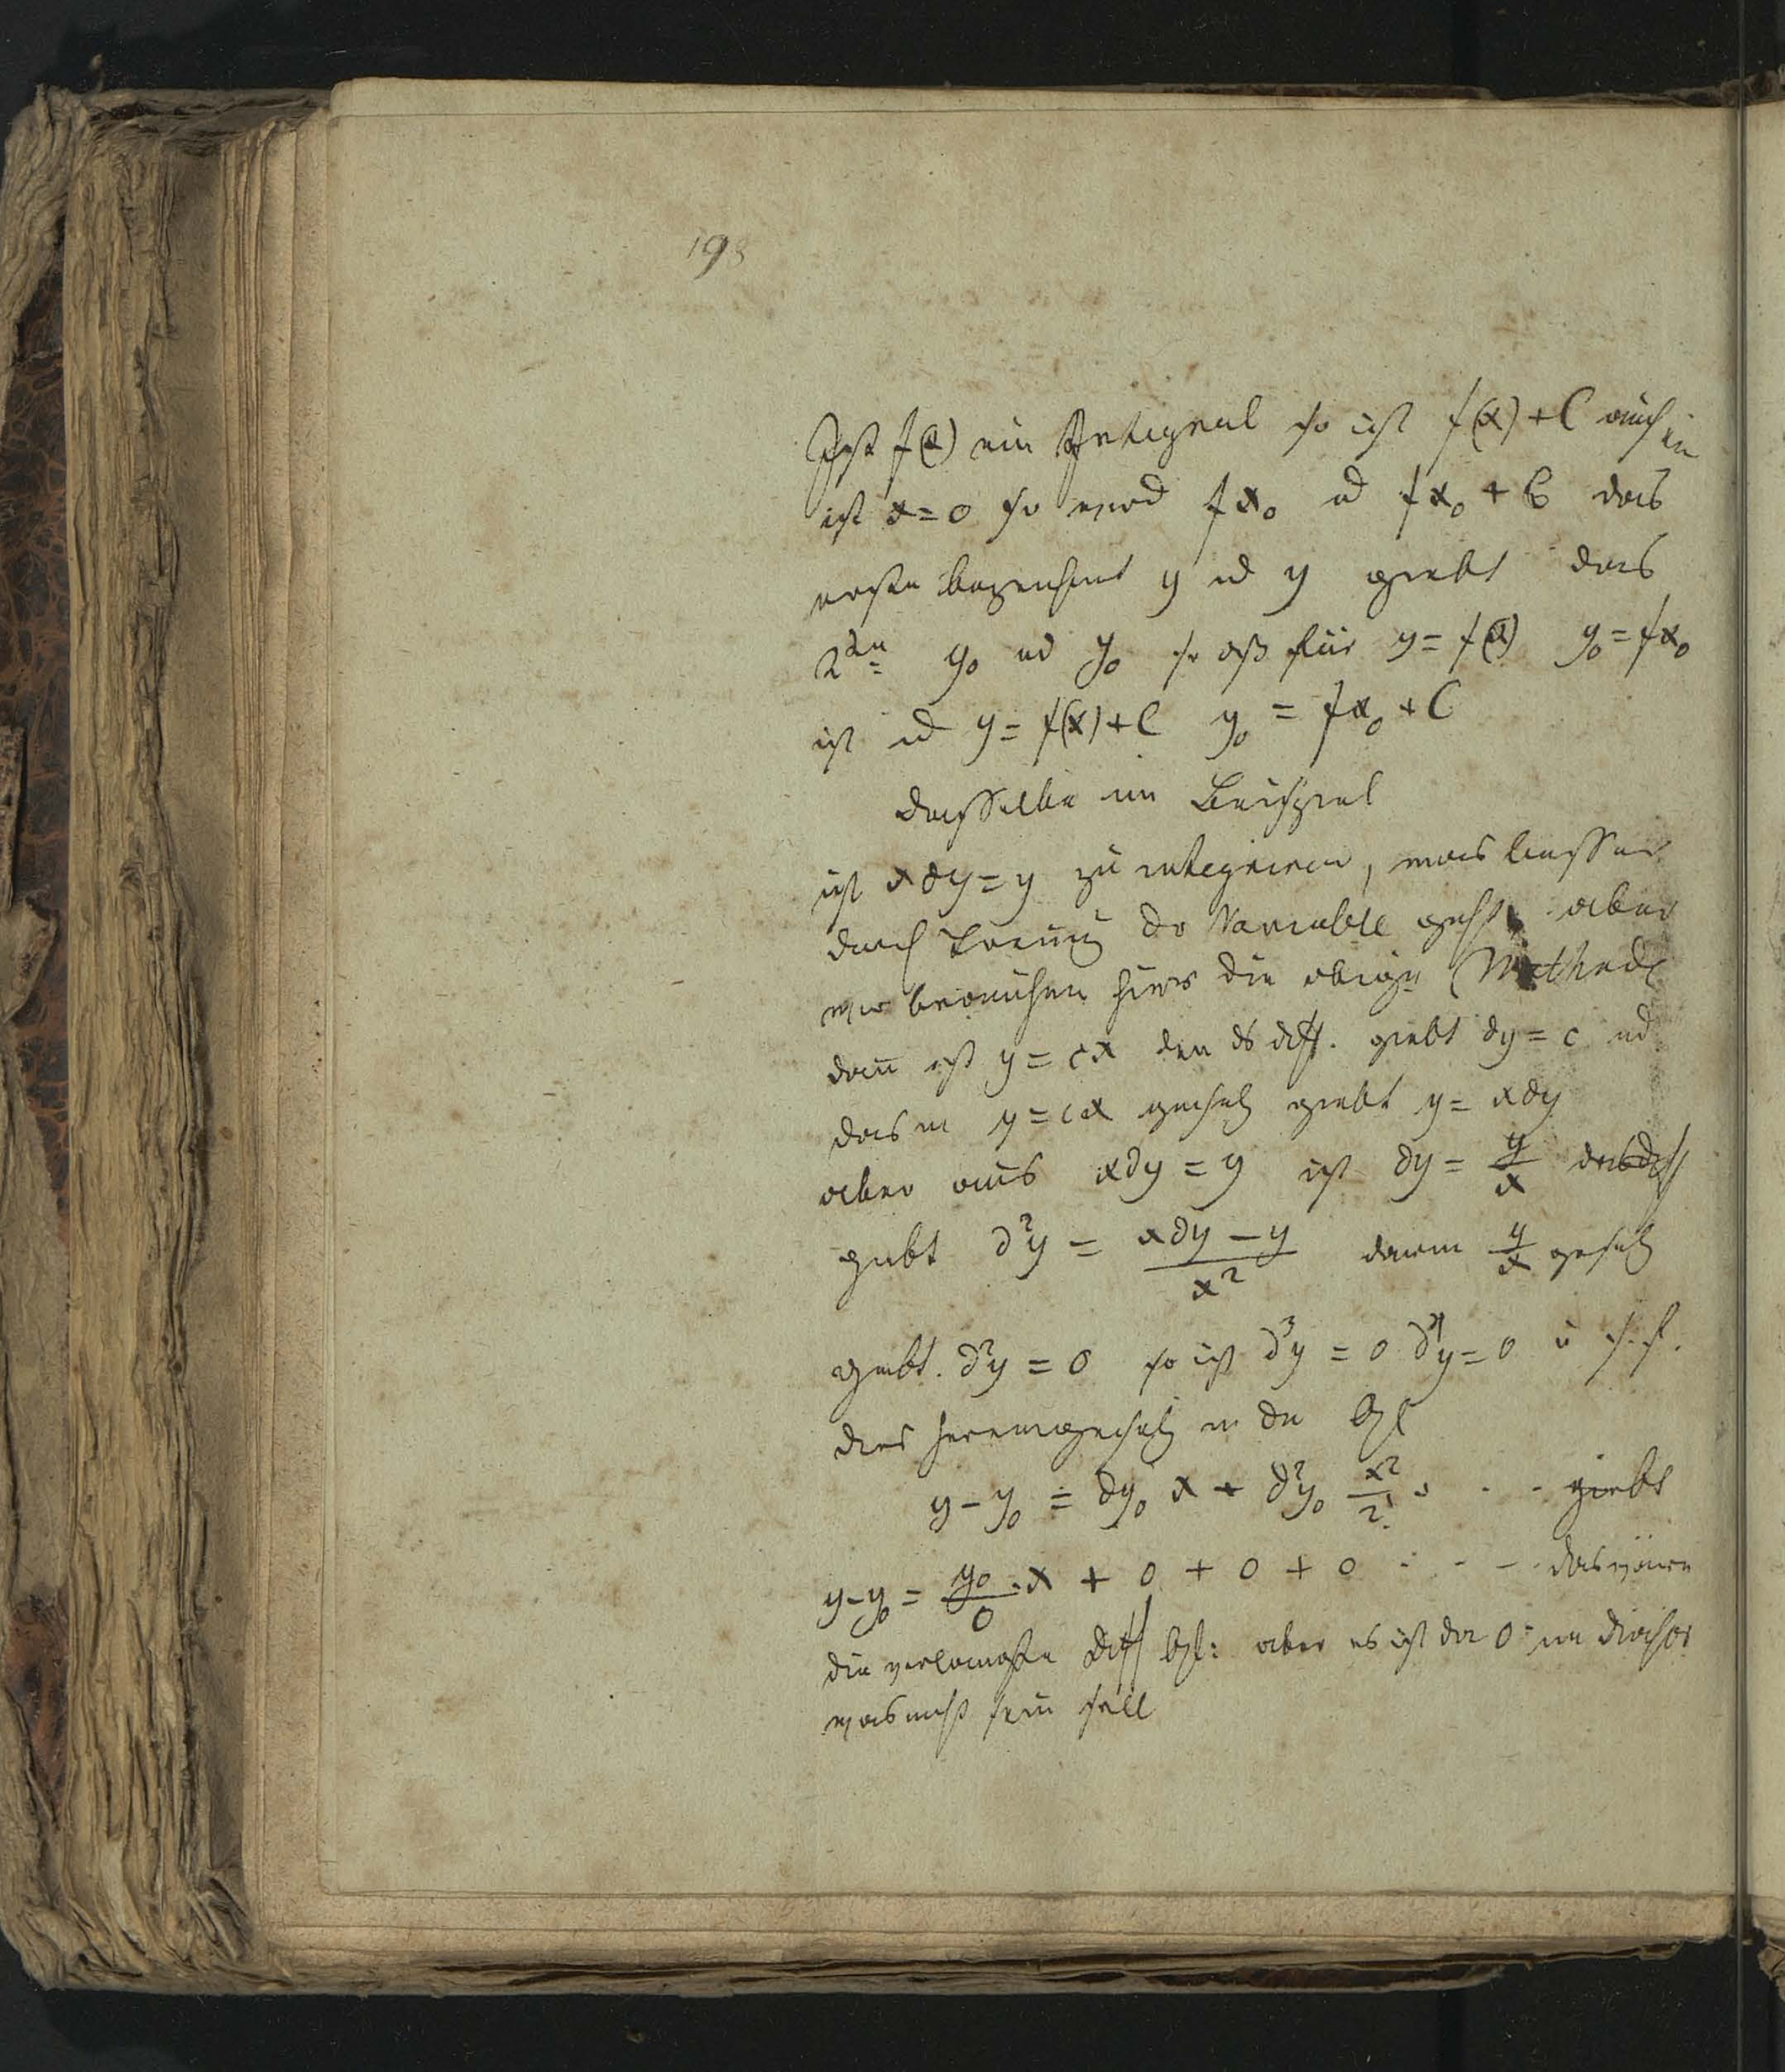 198
Ist f(x) ein Integral so ist f(x) + C auch ein
ist x = 0 so wird fx₀ ud fx₀ + C das
erste bezeichnet y ud y giebt das
2te y₀ ud y₀ so daß für y = f(x) y₀ = fx₀
ist ud y = f(x) + C y₀ = fx₀ + C
dasselbe im Beispiel
ist x∂y = y zu integriren, was besser
durch Trenung der Variable geht aber
wir brauchen hier die obige Methode
dann ist y = cx den ds diff. giebt ∂y = c ud
das in y = cx gesetz giebt y = x∂y
aber aus x∂y = y ist ∂y = y/x das diff
giebt ∂²y = (x∂y − y)/x² darin y/x gesetz
giebt. ∂²y = 0 so ist ∂³y = 0 ∂⁴y = 0 u s. f.
dies hereingesetz in die Gl
y − y₀ = ∂y₀ x + ∂²y₀ x²/2! + . . giebt
y − y₀ = y₀/0 . x + 0 + 0 + 0 . . . das wäre
die verlangte Diff Gl: aber es ist die 0 im Divisor
was nicht sein soll